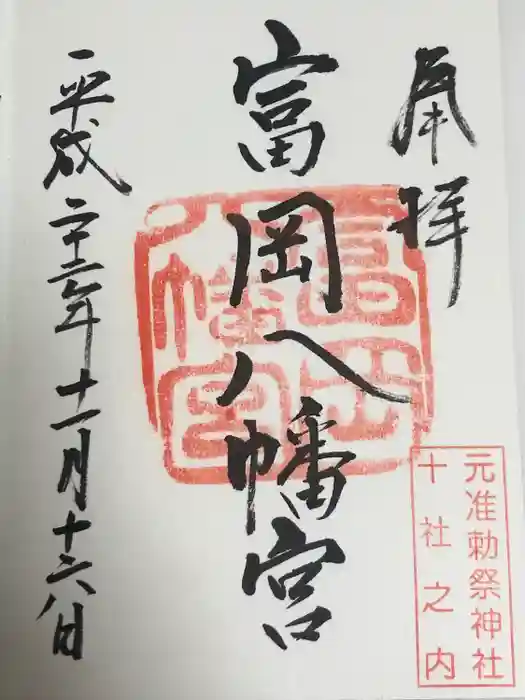 奉拝
元准勅祭神社
十社之内
富岡八幡宮
富岡
八幡宮
平成二十三年十一月十六日